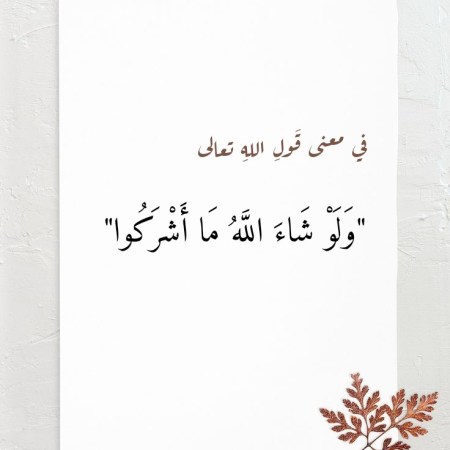 في معنى قَولِ اللهِ تعالى
"وَلَوْ شَاءَ اللَّهُ مَا أَشْرَكُوا"